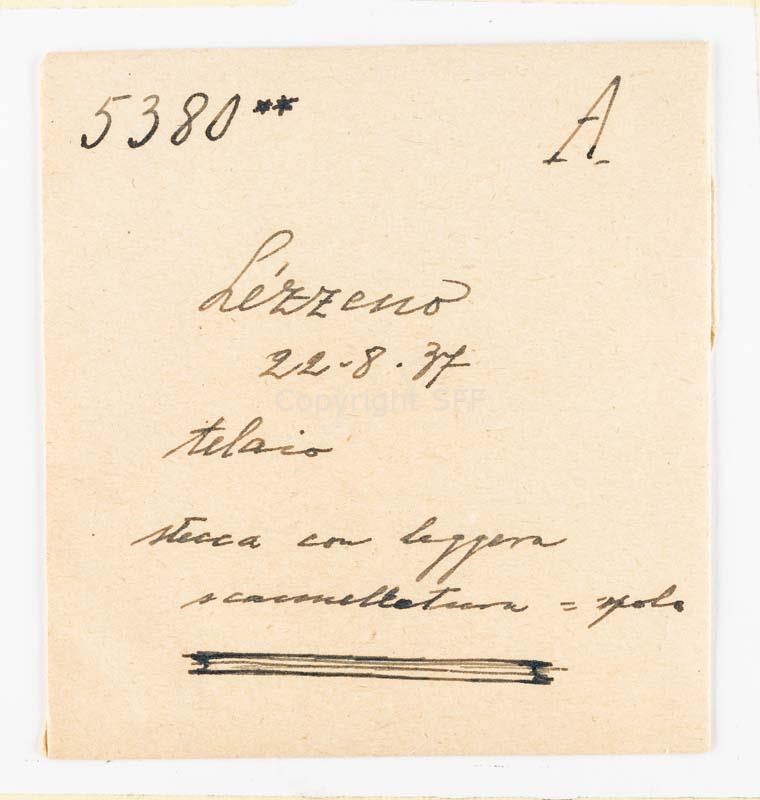 5380** A
Lézzeno
22-8.37
Copyright SFF
telaio
stecca con leggera
scannellatura = spola